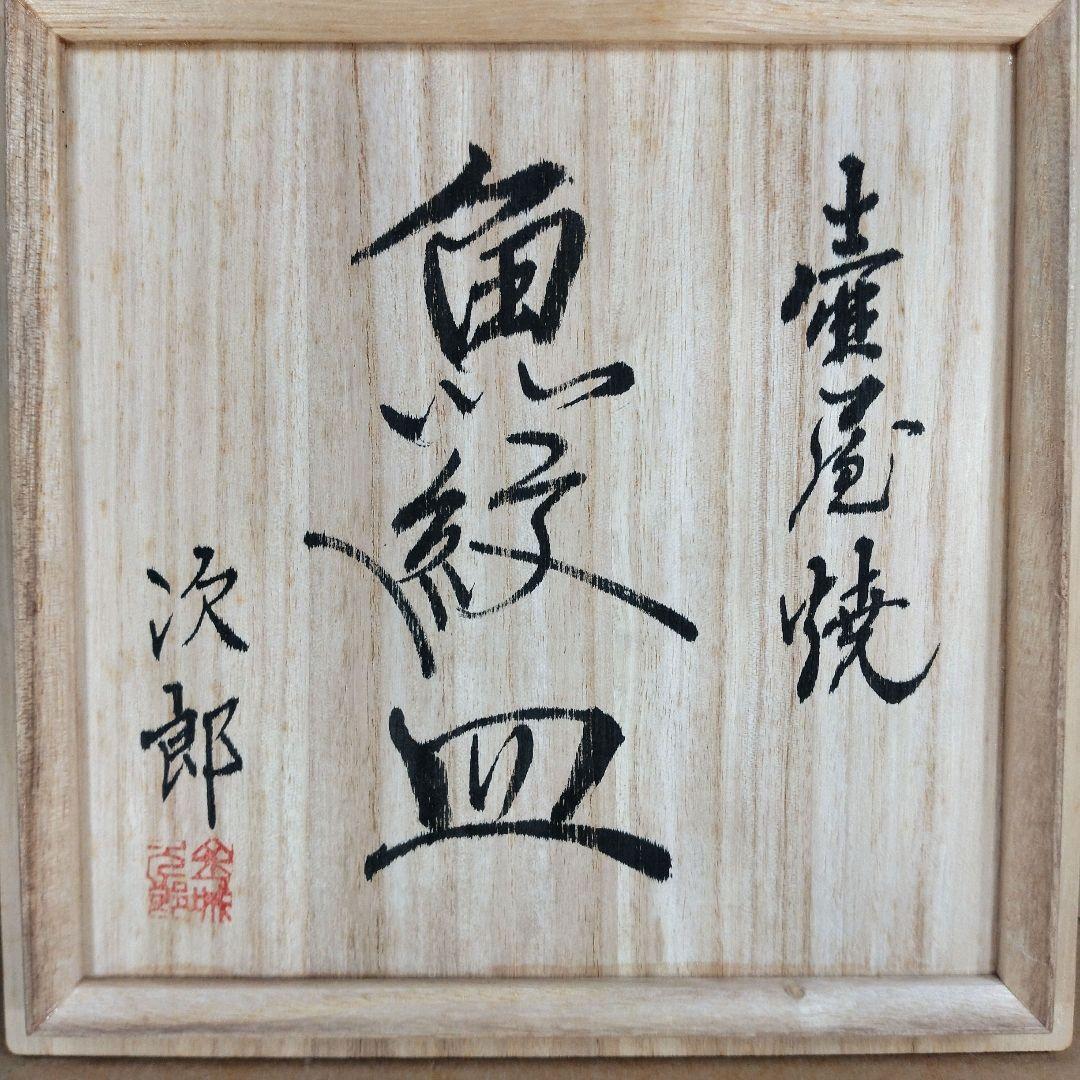 壷屋焼
魚紋皿
次郎